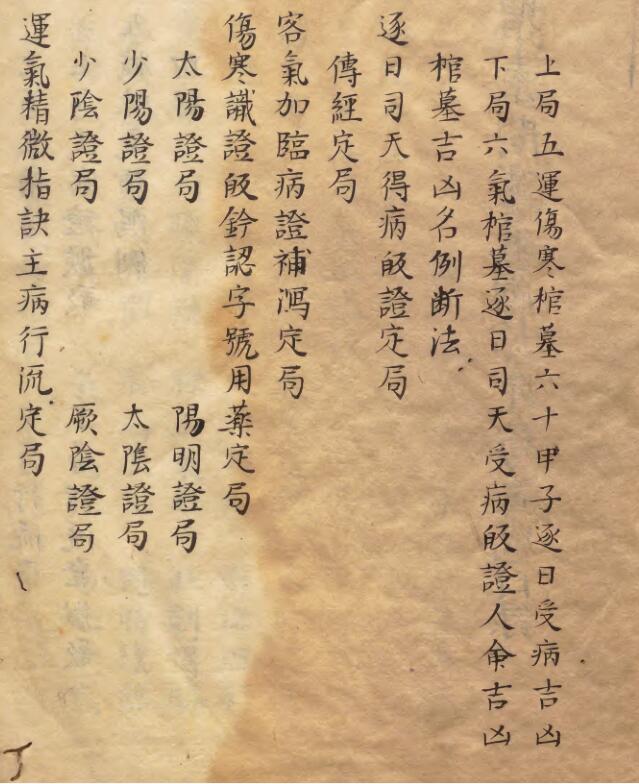 上局五運傷寒棺墓六十甲子逐日受病吉凶
下局六氣棺墓逐日司天受病皈證人命吉凶
棺墓吉凶名例断法
逐日司天得病皈證定局
傳經定局
客氣加臨病證補瀉定局
傷寒識證皈鈐認字號用藥定局
太陽證局 陽明證局
少陽證局 太陰證局
少陰證局 厥陰證局
運氣精微指訣主病行流定局